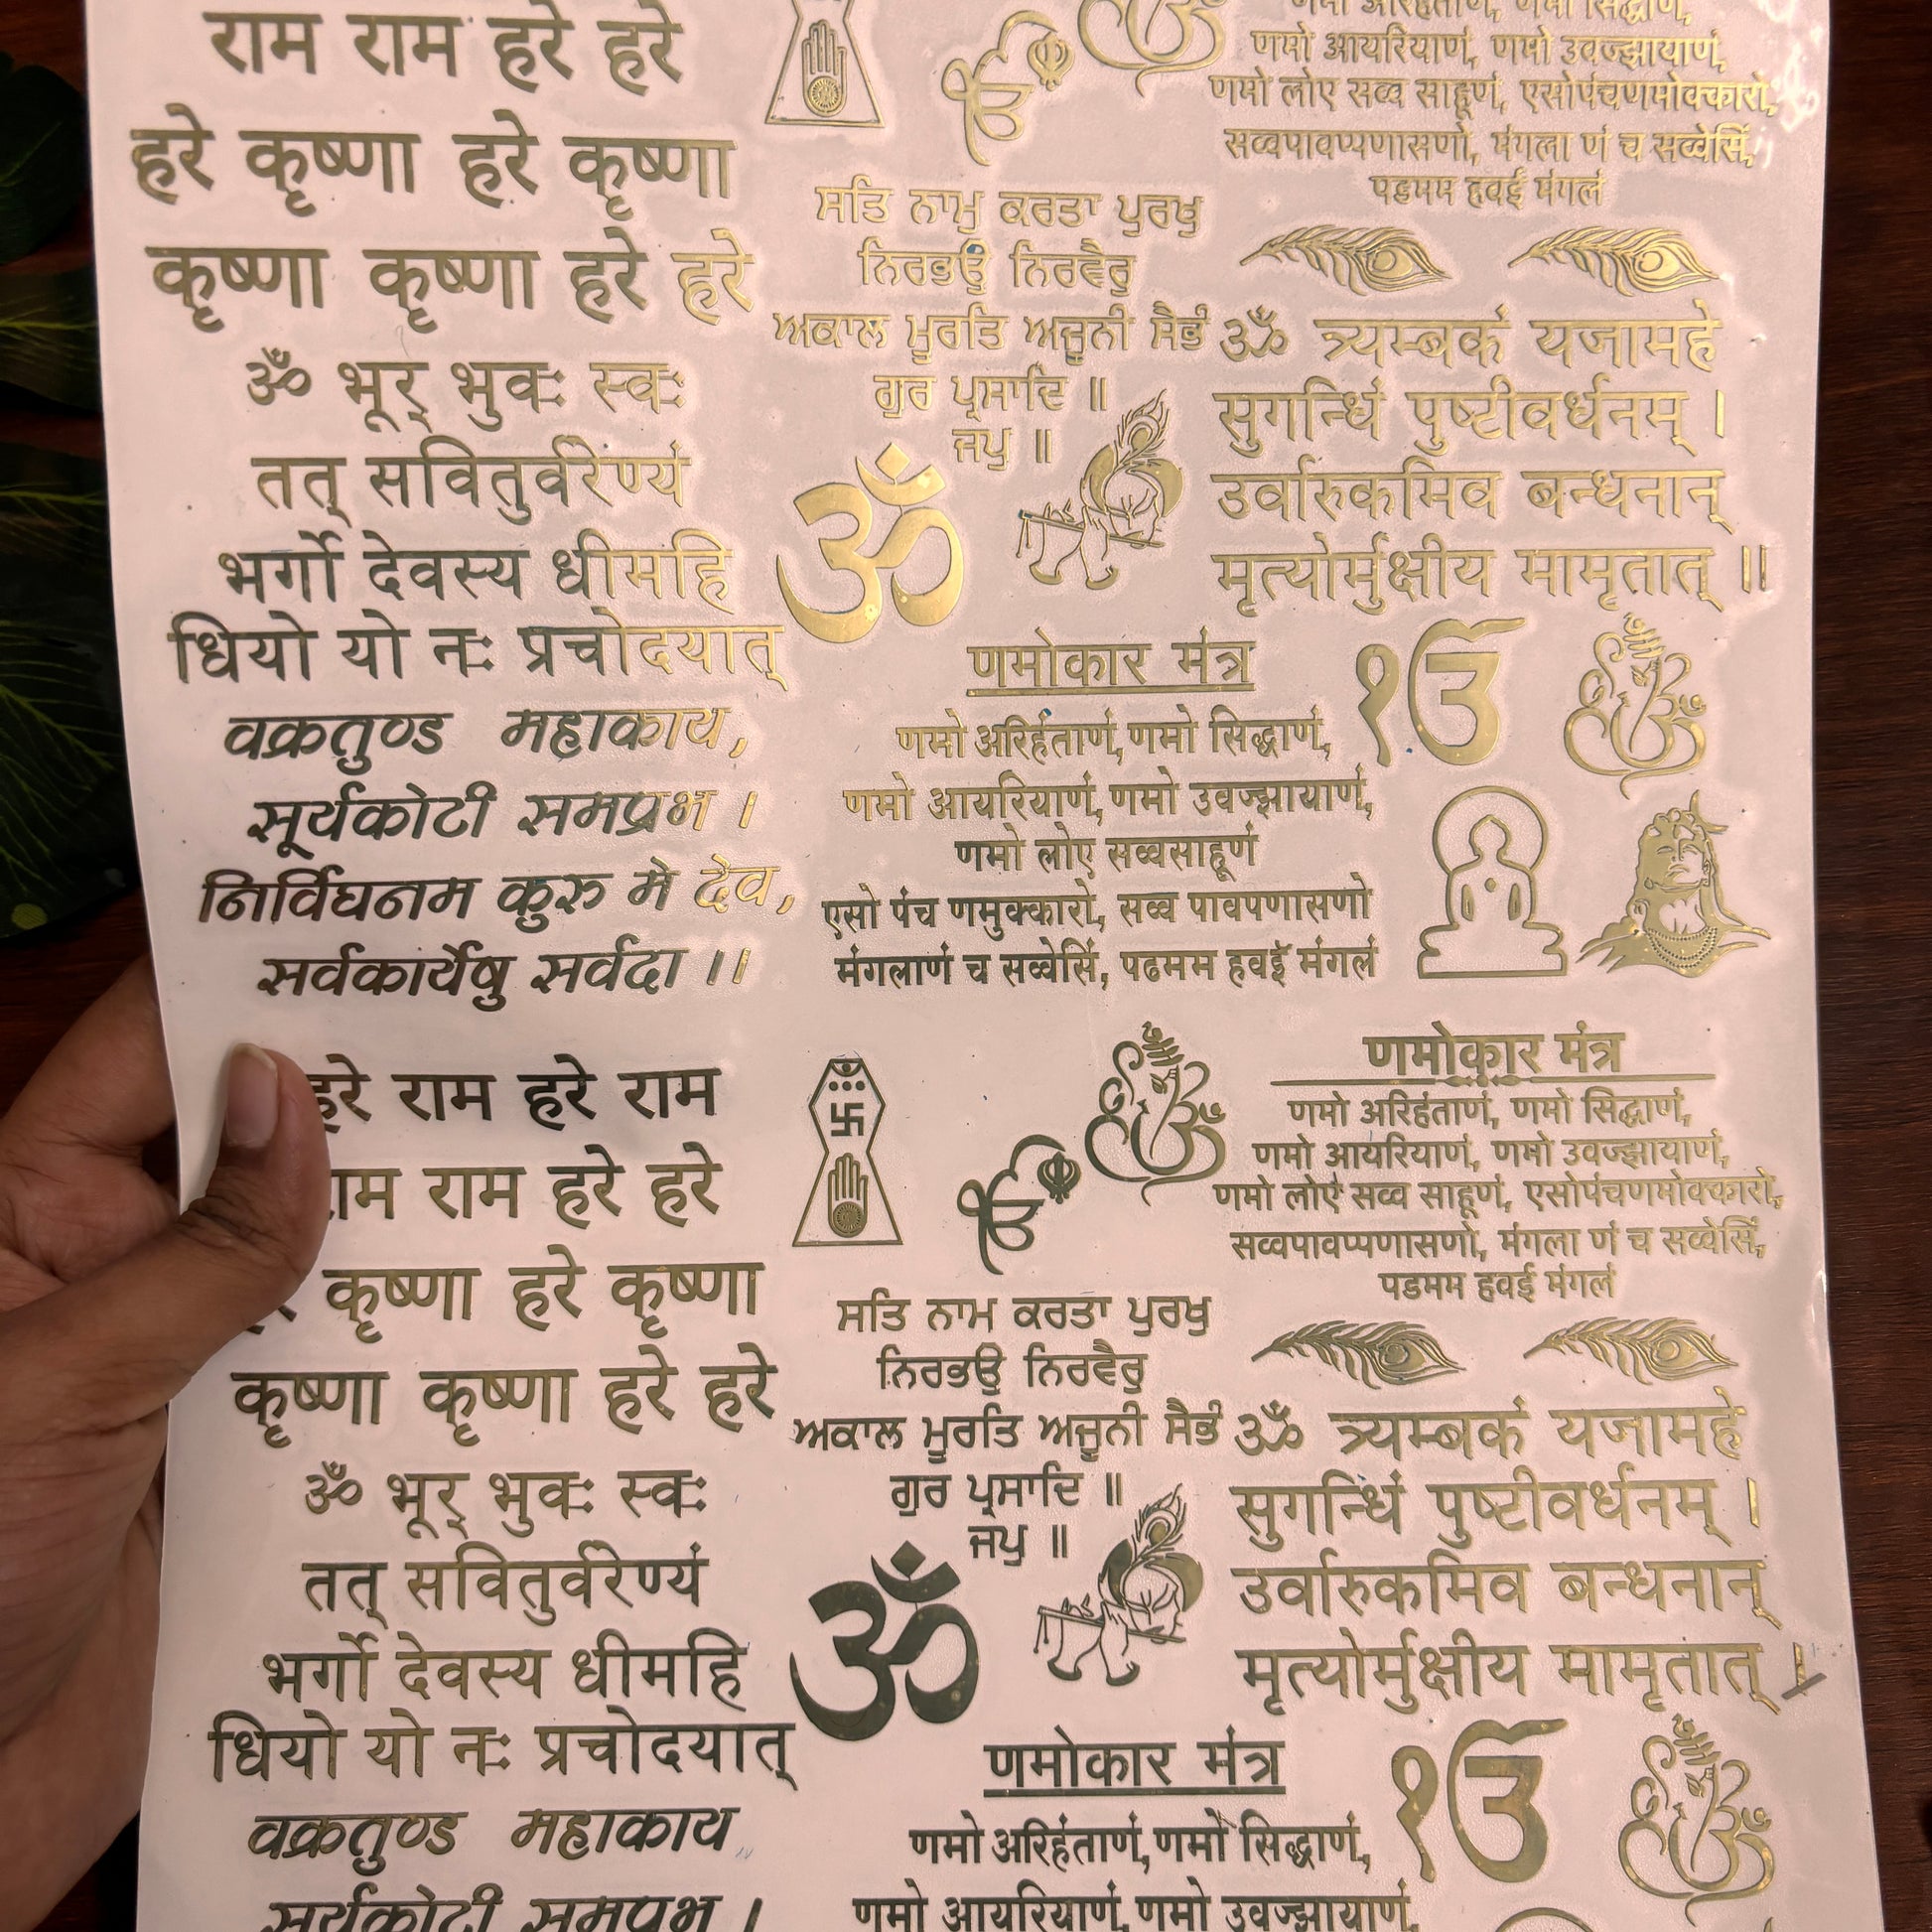 राम राम हरे हरे
हरे कृष्णा हरे कृष्णा
कृष्णा कृष्णा हरे हरे
ॐ भूर् भुवः स्वः
तत् सवितुर्वरेण्यं
भर्गो देवस्य धीमहि
धियो यो नः प्रचोदयात्
वक्रतुण्ड महाकाय,
सूर्यकोटी समप्रभ ।
निर्विघनम कुरु मे देव,
सर्वकार्येषु सर्वदा ।।
ੴ
ਸਤਿ ਨਾਮੁ ਕਰਤਾ ਪੁਰਖੁ
ਨਿਰਭਉ ਨਿਰਵੈਰੁ
ਅਕਾਲ ਮੂਰਤਿ ਅਜੂਨੀ ਸੈਭੰ
ਗੁਰ ਪ੍ਰਸਾਦਿ ॥
ਜਪੁ ॥
ॐ
णमो अरिहंताणं, णमो सिद्धाणं,
णमो आयरियाणं, णमो उवज्झायाणं,
णमो लोए सव्व साहूणं, एसोपंचणमोक्कारो,
सव्वपावप्पणासणो, मंगला णं च सव्वेसिं,
पडमम हवई मंगलं
ॐ त्र्यम्बकं यजामहे
सुगन्धिं पुष्टीवर्धनम् ।
उर्वारुकमिव बन्धनान्
मृत्योर्मुक्षीय मामृतात् ॥
णमोकार मंत्र
णमो अरिहंताणं, णमो सिद्धाणं,
णमो आयरियाणं, णमो उवज्झायाणं,
णमो लोए सव्वसाहूणं
एसो पंच णमुक्कारो, सव्व पावपणासणो
मंगलाणं च सव्वेसिं, पढमम हवइं मंगलं
ੴ
हरे राम हरे राम
राम राम हरे हरे
कृष्णा हरे कृष्णा
कृष्णा कृष्णा हरे हरे
ॐ भूर् भुवः स्वः
तत् सवितुर्वरेण्यं
भर्गो देवस्य धीमहि
धियो यो नः प्रचोदयात्
वक्रतुण्ड महाकाय
सूर्यकोटी समप्रभ ।
ੴ
ਸਤਿ ਨਾਮ ਕਰਤਾ ਪੁਰਖੁ
ਨਿਰਭਉ ਨਿਰਵੈਰੁ
ਅਕਾਲ ਮੂਰਤਿ ਅਜੂਨੀ ਸੈਭੰ
ਗੁਰ ਪ੍ਰਸਾਦਿ ॥
ਜਪੁ ॥
ॐ
णमोकार मंत्र
णमो अरिहंताणं, णमो सिद्धाणं,
णमो आयरियाणं, णमो उवज्झायाणं,
णमो लोएं सव्व साहूणं, एसोपंचणमोक्कारो,
सव्वपावप्पणासणो, मंगला णं च सव्वेसिं,
पडमम हवई मंगलं
ॐ त्र्यम्बकं यजामहे
सुगन्धिं पुष्टीवर्धनम् ।
उर्वारुकमिव बन्धनान्
मृत्योर्मुक्षीय मामृतात् ।
णमोकार मंत्र
णमो अरिहंताणं, णमो सिद्धाणं,
णमो आयरियाणं, णमो उवज्झायाणं,
ੴ